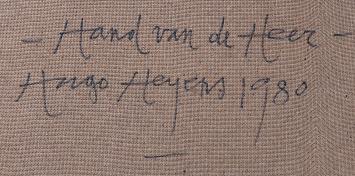 - Hand van de Heer -
Hugo Heyens 1980